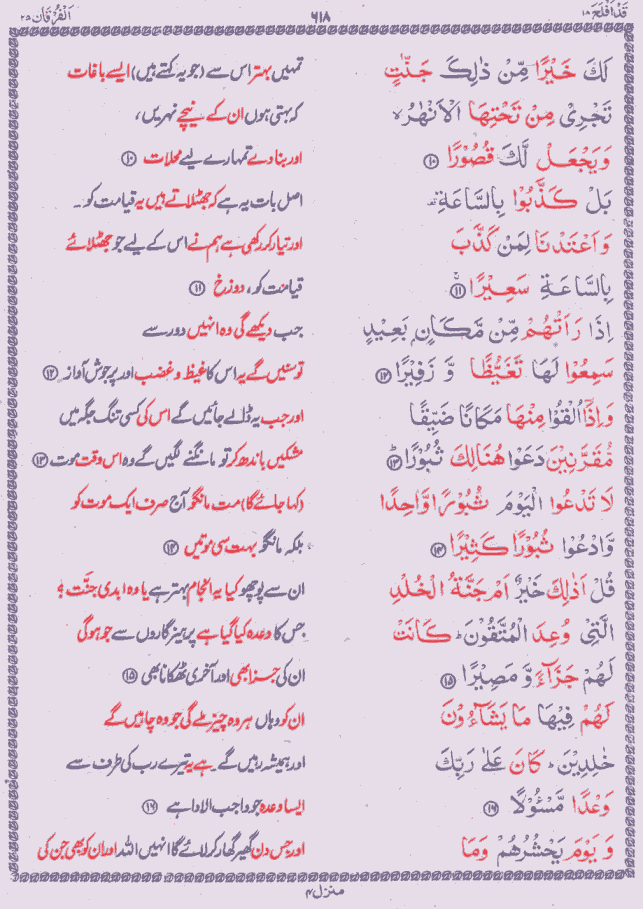 قَدْ اَفْلَحَ ۱۸
۶۱۸
اَلْفُرْقَان ۲۵
لَكَ خَيْرًا مِّنْ ذٰلِكَ جَنّٰتٍ
تمہیں بہتر اس سے (جو یہ کہتے ہیں) ایسے باغات
تَجْرِىْ مِنْ تَحْتِهَا الْاَنْهٰرُ ۙ
کہ بہتی ہوں ان کے نیچے نہریں،
وَيَجْعَلْ لَّكَ قُصُوْرًا ۱۰
اور بنا دے تمہارے لیے محلات ۱۰
بَلْ كَذَّبُوْا بِالسَّاعَةِ
اصل بات یہ ہے کہ جھٹلاتے ہیں یہ قیامت کو۔
وَاَعْتَدْنَا لِمَنْ كَذَّبَ
اور تیار کر رکھی ہے ہم نے اس کے لیے جو جھٹلائے
بِالسَّاعَةِ سَعِيْرًا ۱۱
قیامت کو، دوزخ ۱۱
اِذَا رَاَتْهُمْ مِّنْ مَّكَانٍۭ بَعِيْدٍ
جب دیکھے گی وہ انہیں دور سے
سَمِعُوْا لَهَا تَغَيُّظًا وَّ زَفِيْرًا ۱۲
تو سنیں گے یہ اس کا غیظ و غضب اور پرجوش آواز ۱۲
وَاِذَاۤ اُلْقُوْا مِنْهَا مَكَانًا ضَيِّقًا
اور جب یہ ڈالے جائیں گے اس کی کسی تنگ جگہ میں
مُّقَرَّنِيْنَ دَعَوْا هُنَالِكَ ثُبُوْرًا ۱۳
مشکیں باندھ کر تو مانگنے لگیں گے وہ اس وقت موت ۱۳
لَا تَدْعُوا الْيَوْمَ ثُبُوْرًا وَّاحِدًا
(کہا جائے گا) مت مانگو آج صرف ایک موت کو
وَّادْعُوْا ثُبُوْرًا كَثِيْرًا ۱۴
بلکہ مانگو بہت سی موتیں ۱۴
قُلْ اَذٰلِكَ خَيْرٌ اَمْ جَنَّةُ الْخُلْدِ
ان سے پوچھو کیا یہ انجام بہتر ہے یا وہ ابدی جنّت ؟
الَّتِىْ وُعِدَ الْمُتَّقُوْنَ ؕ كَانَتْ
جس کا وعدہ کیا گیا ہے پرہیزگاروں سے جو ہوگی
لَهُمْ جَزَآءً وَّ مَصِيْرًا ۱۵
ان کی جزا بھی اور آخری ٹھکانا بھی ۱۵
لَهُمْ فِيْهَا مَا يَشَآءُوْنَ
ان کو وہاں ہر وہ چیز ملے گی جو وہ چاہیں گے
خٰلِدِيْنَ ؕ كَانَ عَلٰى رَبِّكَ
اور ہمیشہ رہیں گے ہے یہ تیرے رب کی طرف سے
وَعْدًا مَّسْـُٔوْلًا ۱۶
ایسا وعدہ جو واجب الادا ہے ۱۶
وَ يَوْمَ يَحْشُرُهُمْ وَمَا
اور جس دن گھیر گھار کر لائے گا انہیں اللہ اور ان کو بھی جن کی
منزل ۴